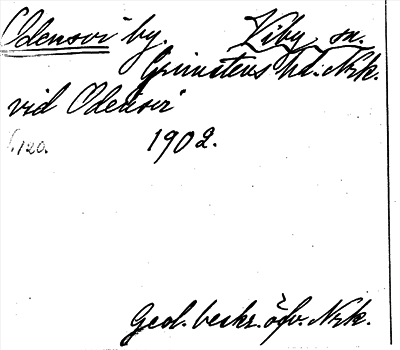 Odensvi by. Viby sn.
Grimstens hd. Nrk.
vid Odensvi
s. 120. 1902.
Geol. beskr. öfv. Nrk.